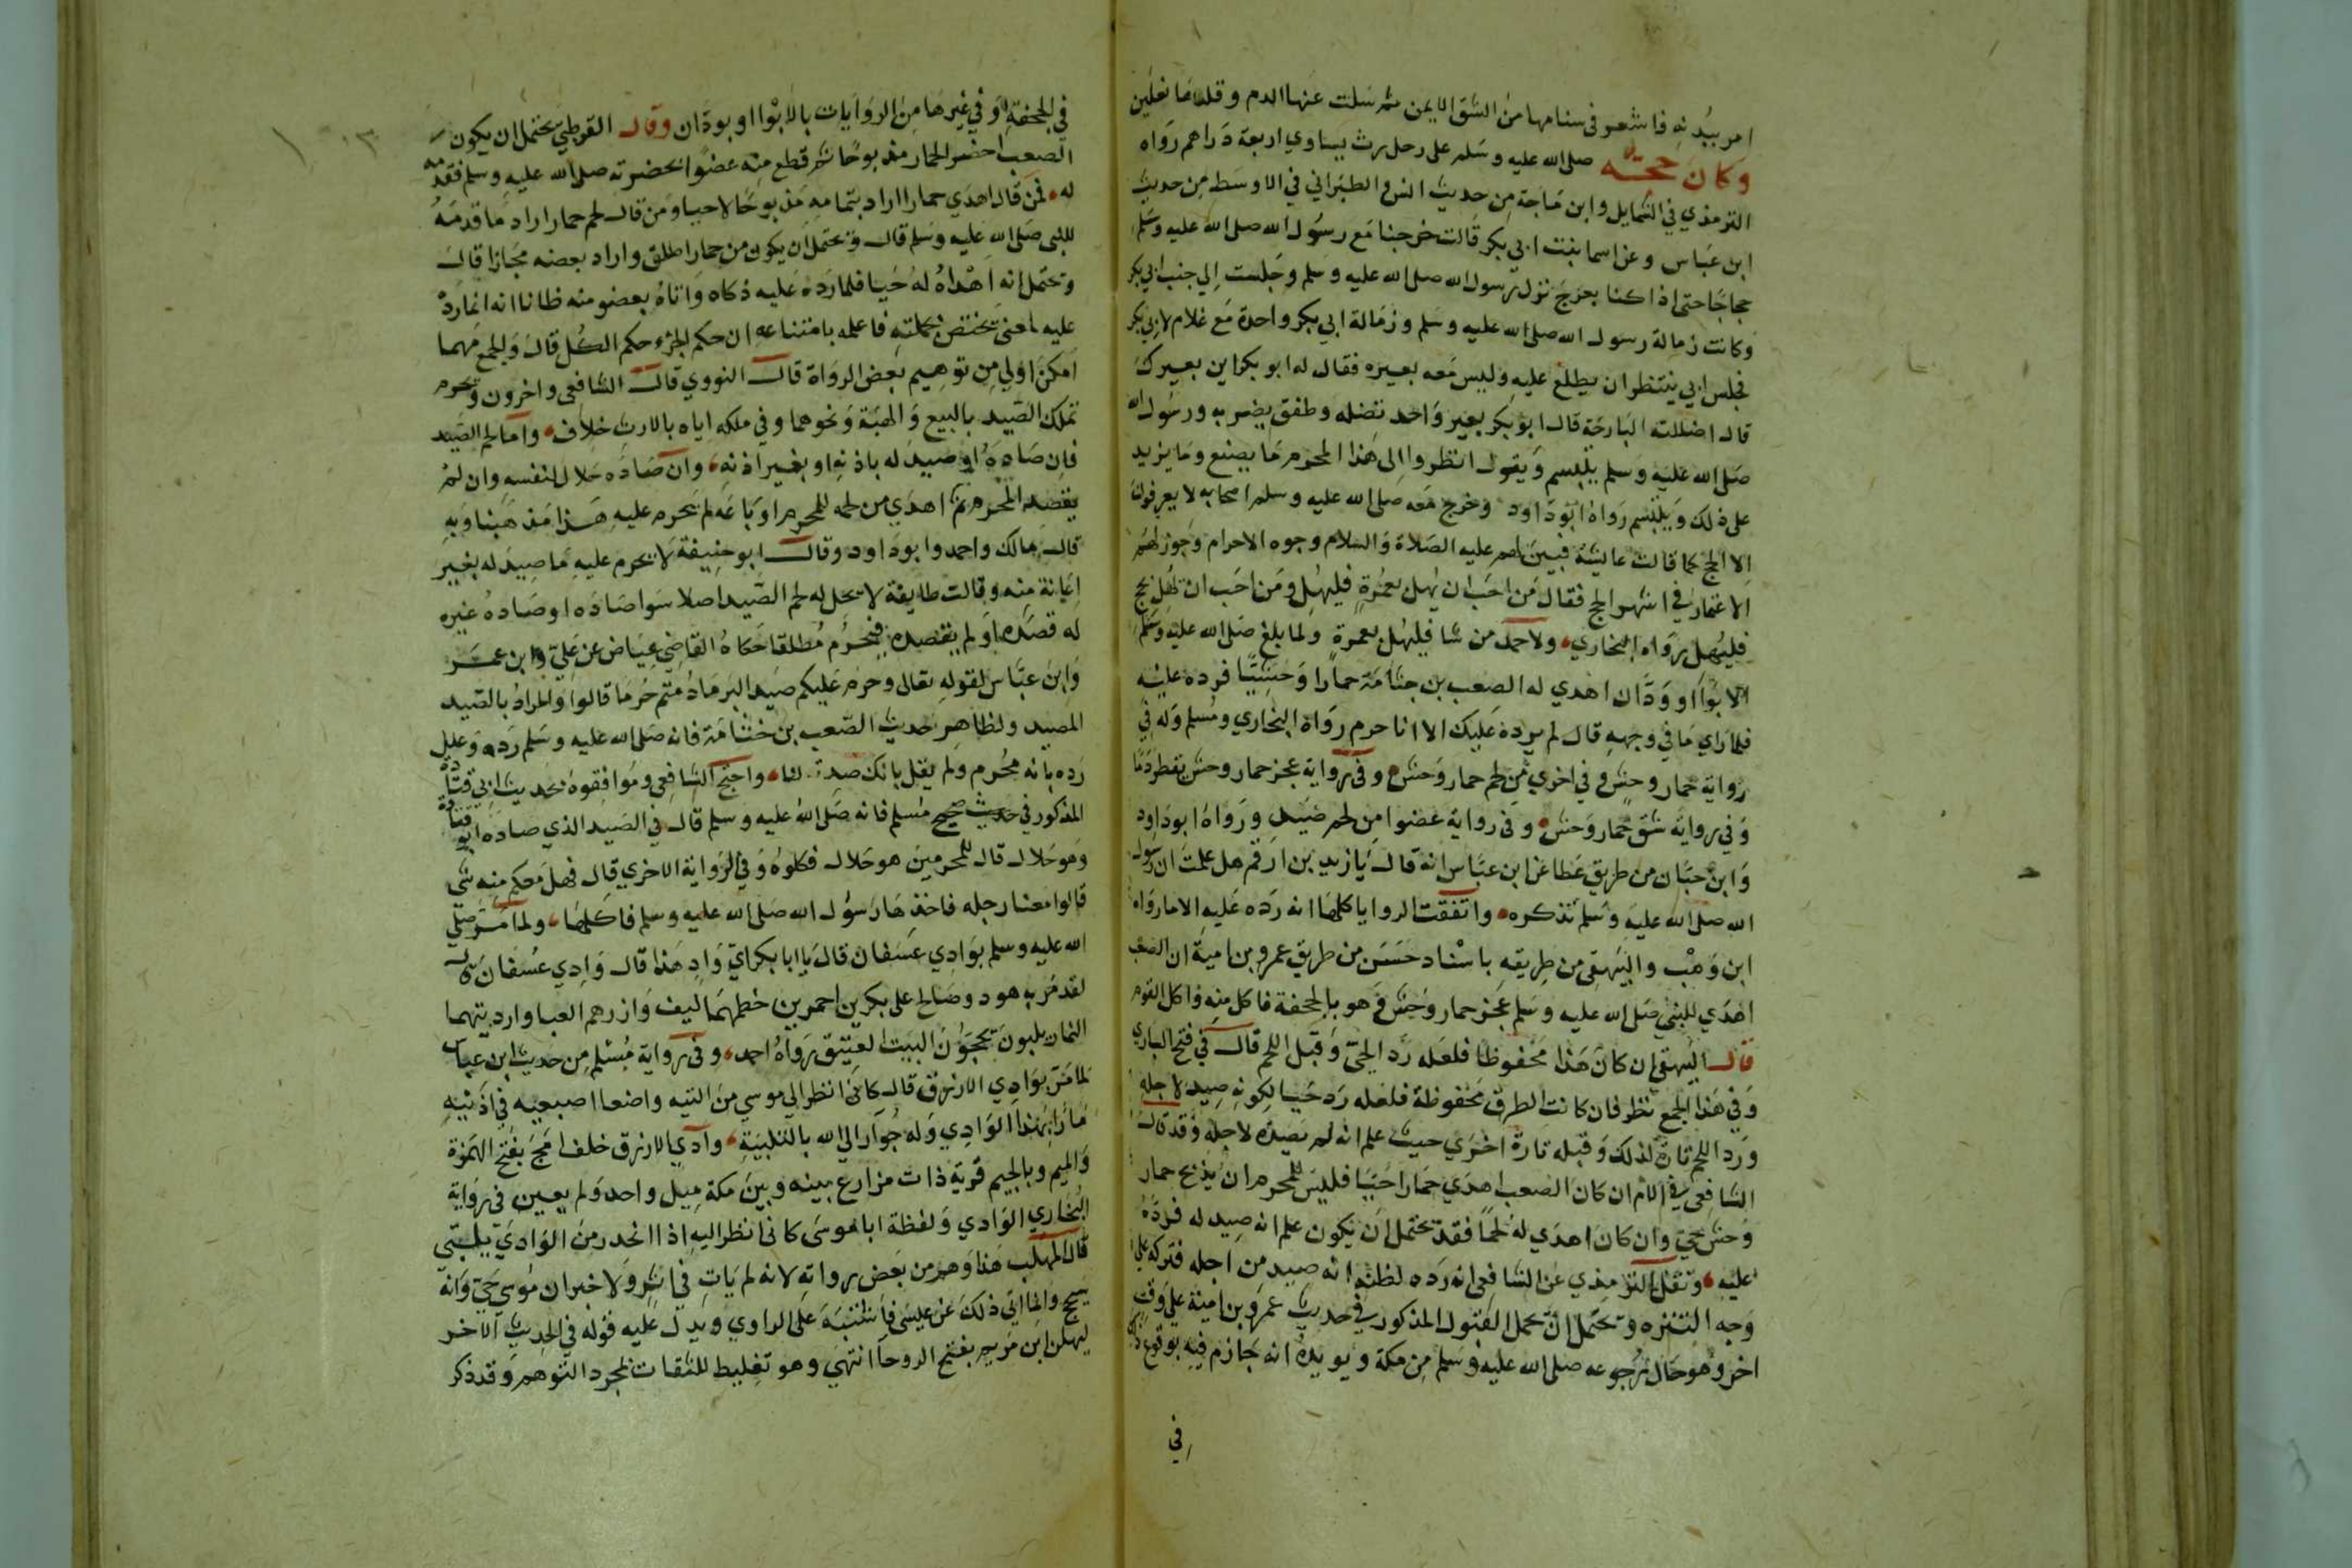 امر ببدنه فاشعر في سنامها من الشق الايمن ثم سلت عنها الدم وقلدها نعلين
وكان حجه صلى الله عليه وسلم على رحل رث يساوي اربعة دراهم رواه
الترمذي في الشمايل وابن ماجة من حديث انس والطبراني في الاوسط من حديث
ابن عباس وعن اسما بنت ابي بكر قالت خرجنا مع رسول الله صلى الله عليه وسلم
حجاجا حتى اذا كنا بعرج نزل رسول الله صلى الله عليه وسلم وجلست الي جنب ابي بكر
وكانت زمالة رسول الله صلى الله عليه وسلم وزمالة ابي بكر واحدة مع غلام لابي بكر
فجلس ابي ينتظر ان يطلع عليه وليس معه بعيره فقال له ابو بكر اين بعيرك
قال اضللته البارحة قال ابو بكر بعير واحد تضله وطفق يضربه ورسول الله
صلى الله عليه وسلم يتبسم ويقول انظروا الى هذا المحرم ما يصنع وما يزيد
على ذلك ويتبسم رواه ابو داود وخرج معه صلى الله عليه وسلم اصحابه لا يعرفون
الا الحج كما قالت عايشة فبين لهم عليه الصلاة والسلام وجوه الاحرام وجوز لهم
الاعتمار في اشهر الحج فقال من احب ان يهل بعمرة فليهل ومن احب ان يهل بحج
فليهل رواه البخاري ولاحمد من شا فليهل بعمرة ولما بلغ صلى الله عليه وسلم
الابوا او ودان اهدي له الصعب بن جثامة حمارا وحشيا فرده عليه
فلما راي ما في وجهه قال لم نرده عليك الا انا حرم رواه البخاري ومسلم وله في
رواية حمار وحش وفي اخري من لحم حمار وحش وفي رواية عجز حمار وحش يقطر دما
وفي رواية شق حمار وحش وفي رواية عضوا من لحم صيد ورواه ابو داود
وابن حبان من طريق عطا عن ابن عباس انه قال يا زيد بن ارقم هل علمت ان رسول
الله صلى الله عليه وسلم فذكره واتفقت الروايا كلها انه رده عليه الا ما رواه
ابن وهب والبيهقي من طريقه باسناد حسن من طريق عمرو بن امية ان الصعب
اهدي للنبي صلى الله عليه وسلم عجز حمار وحش وهو بالجحفة فاكل منه واكل القوم
قال البيهقي ان كان هذا محفوظا فلعله رد الحي وقبل اللحم قال في فتح الباري
وفي هذا الجمع نظر فان كانت الطرق محفوظة فلعله رده حيا لكونه صيد لاجله
ورد اللحم تارة لذلك وقبله تارة اخري حيث علم انه لم يصيده لاجله وقد قال
الشافعي في الام ان كان الصعب اهدي حمارا حيا فليس للمحرم ان يذبح حمار
وحش حي وان كان اهدي له لحما فقد يحتمل ان يكون علم انه صيد له فرده
عليه ونقل الترمذي عن الشافعي انه رده لظنه انه صيد من اجله فتركه علي
وجه التنزه ويحتمل ان يحمل القبول المذكور في حديث عمرو بن امية علي وقت
اخر وهو حال رجوعه صلى الله عليه وسلم من مكة ويويده انه جازم فيه بوقوع ذلك
في
في الجحفة وفي غيرها من الروايات بالابوا او بودان وقال القرطبي يحتمل ان يكون
الصعب احضر الحمار مذبوحا ثم قطع منه عضوا بحضرته صلى الله عليه وسلم فقدمه
له فمن قال اهدي حمارا اراد بتمامه مذبوحا لا حيا ومن قال لحم حمار اراد ما قدمه
للنبي صلى الله عليه وسلم قال ويحتمل ان يكون من حمارا اطلق واراد بعضه مجازا قال
ويحتمل انه اهداه له حيا فلما رده عليه ذكاه واتاه بعضو منه ظانا انه انما رده
عليه لمعنى يختص بجملته فاعلمه بامتناعه ان حكم الجزء حكم الكل قال والجمع مهما
امكن اولي من توهيم بعض الرواة قال النووي قال الشافعي واخرون ويحرم
تملك الصيد بالبيع والهبة ونحوهما وفي ملكه اياه بالارث خلاف واما لحم الصيد
فان صاده او صيد له باذنه او بغير اذنه وان صاده حلال لنفسه وان لم
يقصد المحرم ثم اهدي من لحمه للمحرم او باعه لم يحرم عليه هذا مذهبنا وبه
قال مالك واحمد وابو داود وقال ابو حنيفة لا يحرم عليه ما صيد له بغير
اعانة منه وقالت طايفة لا يحل له لحم الصيد اصلا سوا صاده او صاده غيره
له قصده او لم يقصده فيحرم مطلقا حكاه القاضي عياض عن علي وابن عمر
وابن عباس لقوله تعالى وحرم عليكم صيد البر ما دمتم حرما قالوا والمراد بالصيد
المصيد ولظاهر حديث الصعب بن جثامة فانه صلى الله عليه وسلم رده وعلل
رده بانه محرم ولم يقل بانك صدته لنا واحتج الشافعي وموافقوه بحديث ابي قتادة
المذكور في صحيح مسلم فانه صلى الله عليه وسلم قال في الصيد الذي صاده ابو قتادة
وهو حلال قال للمحرمين هو حلال فكلوه وفي الرواية الاخري قال فهل معكم منه شي
قالوا معنا رجله فاخذها رسول الله صلى الله عليه وسلم فاكلها ولما مر صلي
الله عليه وسلم بوادي عسفان قال يا ابا بكر اي واد هذا قال وادي عسفان قال
لقد مر به هود وصالح على بكرين احمرين خطمهما الليف وازرهم العبا وارديتهما
النمار يلبون يحجون البيت العتيق رواه احمد وفي رواية مسلم من حديث ابن عباس
لما مر بوادي الازرق قال كاني انظر الي موسي من الثنيه واضعا اصبعيه في اذنيه
مارا بهذا الوادي وله جوار الي الله بالتلبية ووادي الازرق خلف امج بفتح الهمزة
والميم وبالجيم قرية ذات مزارع بينه وبين مكة ميل واحد ولم يعين في رواية
البخاري الوادي ولفظة اما موسى كاني انظر اليه اذا انحدر من الوادي يلبي
قال المهلب هذا وهم من بعض رواته لانه لم يات في اثر ولا خبر ان موسي حي وانه
يحج وانما اتي ذلك عن عيسى فاشتبه على الراوي ويدل عليه قوله في الحديث الاخر
ليهلن ابن مريم بفج الروحا انتهي وهو تغليط للثقات لمجرد التوهم وقد ذكر